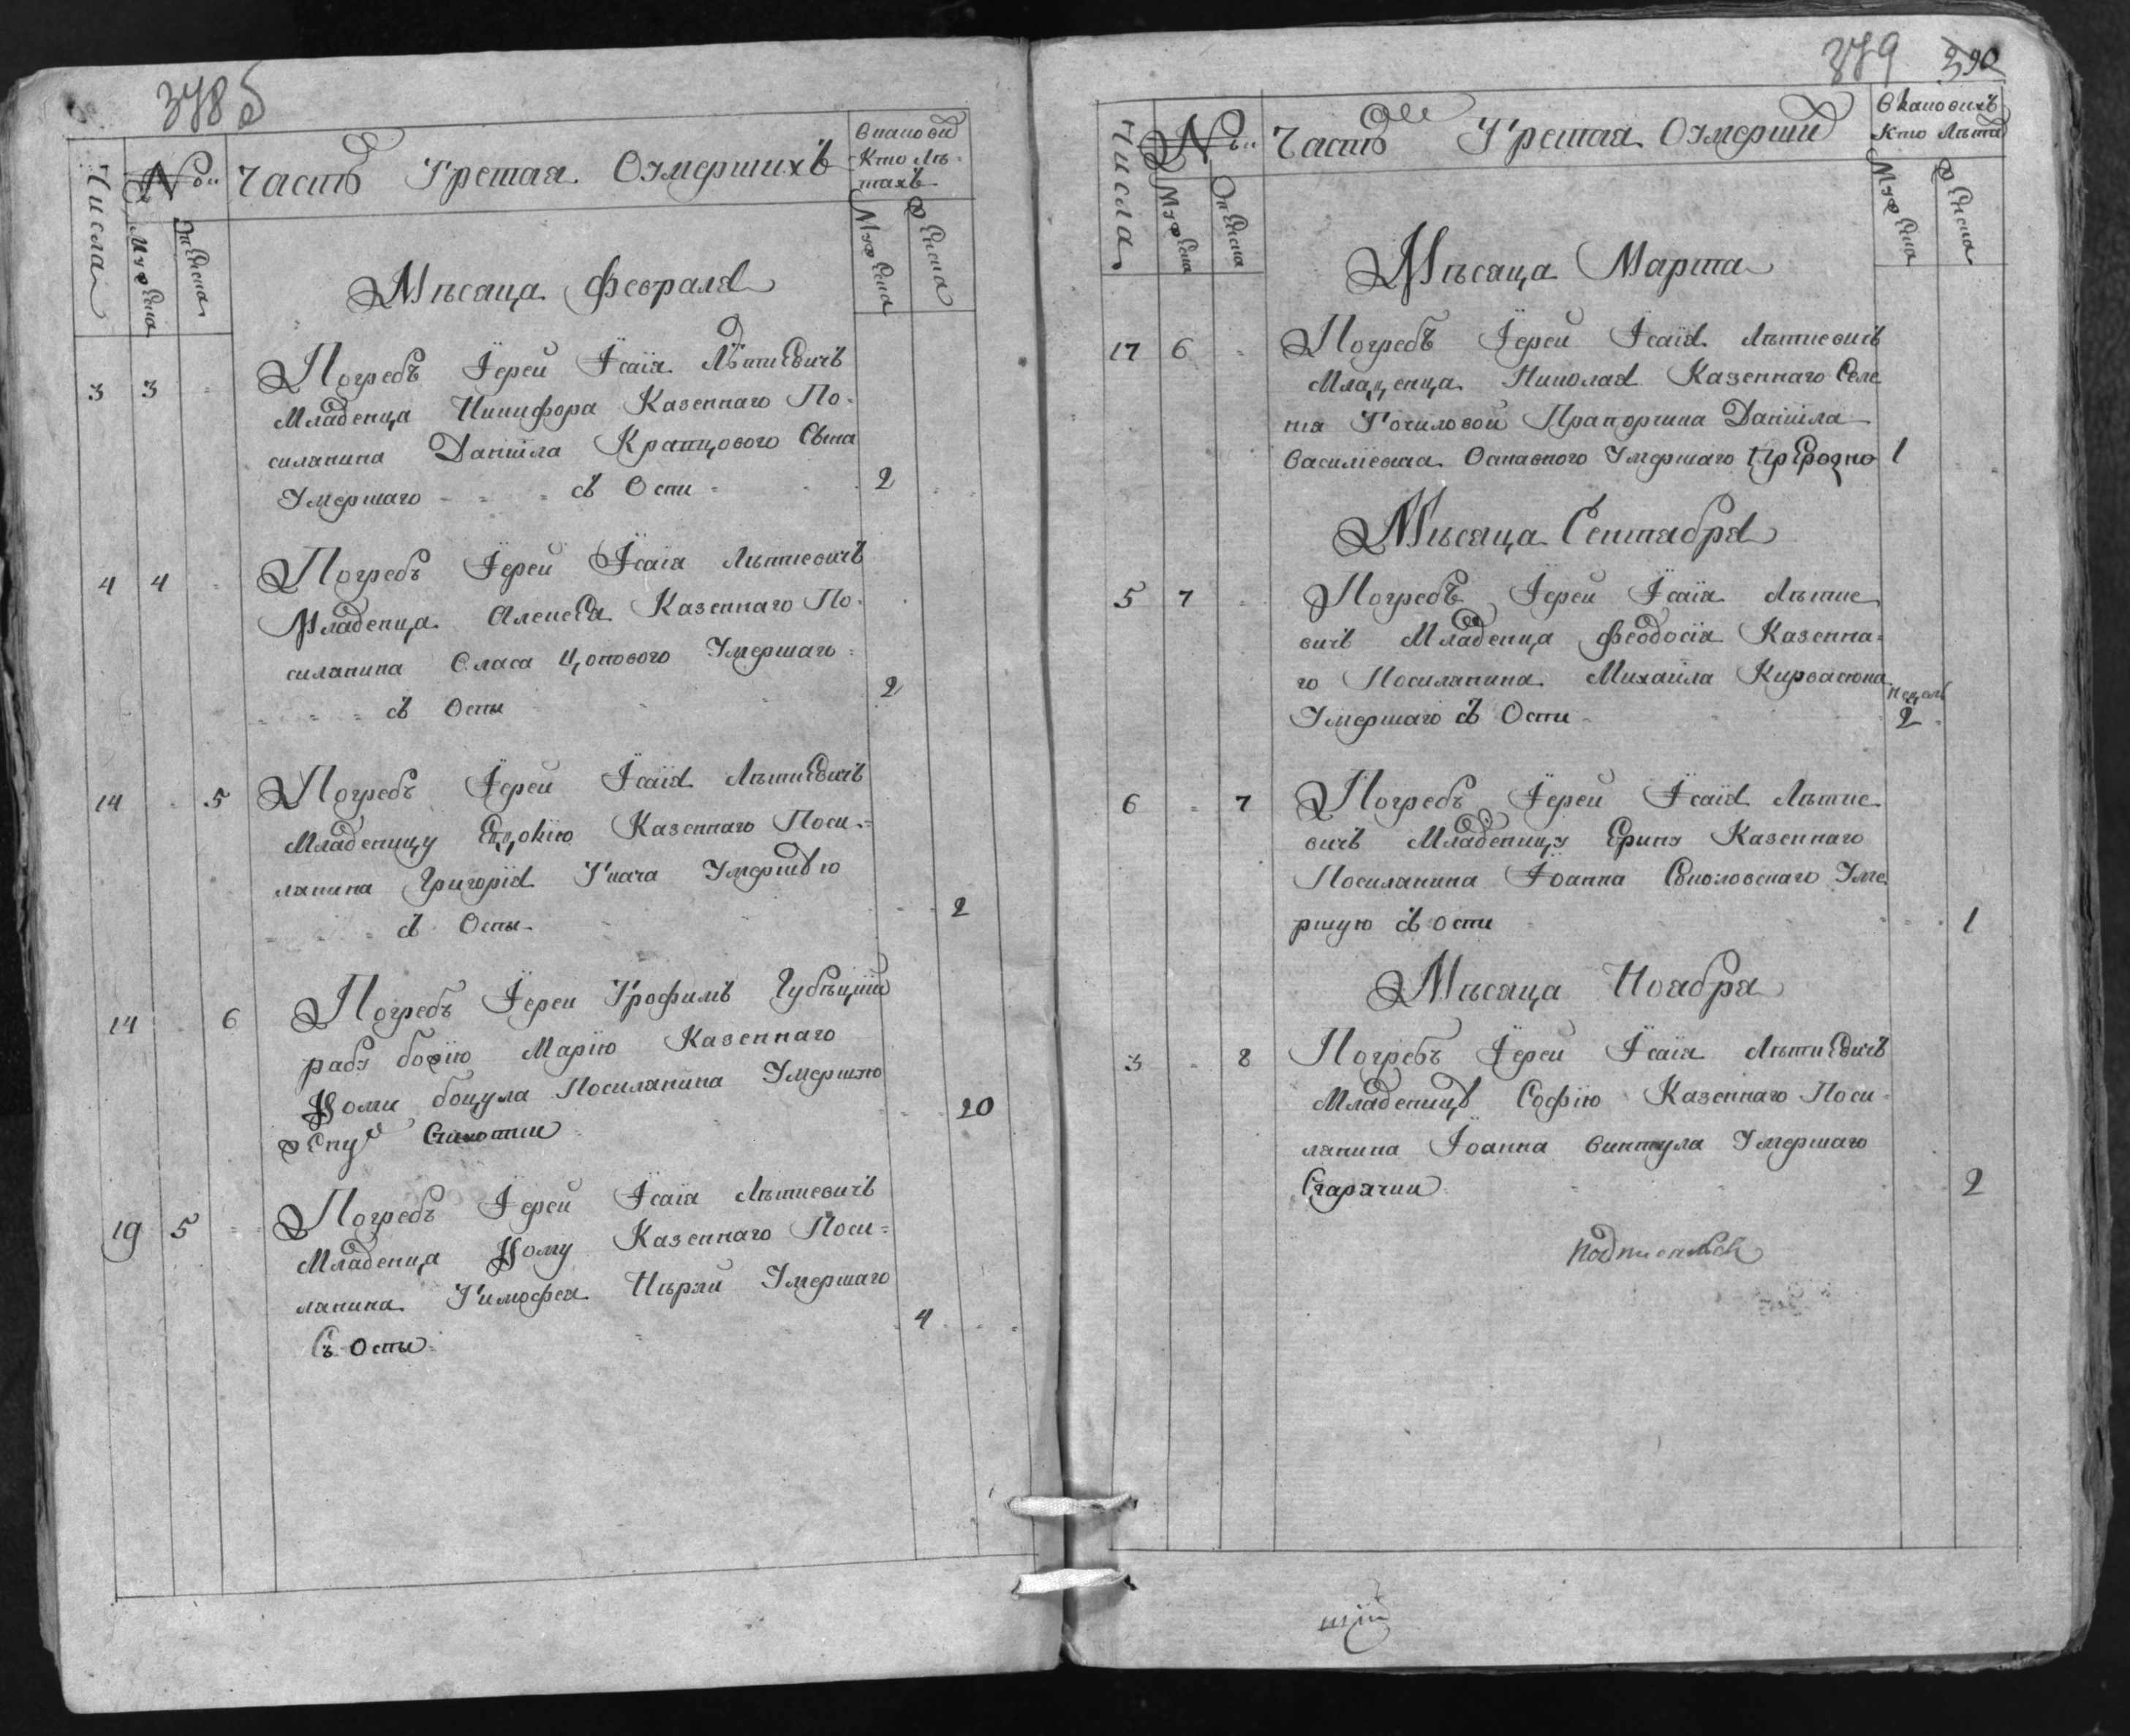 378 б
Числа
№
Часть Третая Оумершихъ
Мужеска
Женска
Мужеска
Женска
Мѣсяца Февраля
3 3 Погребъ Іерей Ісаія Лѣтневичъ
Младенца Никифора Казеннаго По-
силянина Даніила Кравцового Сына
Умершаго съ Оспи 2
4 4 Погребъ Іерей Ісаія Лѣтневичъ
Младенца Алексея Казеннаго По-
силянина Власа Цопового Умершаго
съ Оспы 2
14 5 Погребъ Іерей Ісаія Лѣтневичъ
Младеницу Евдокію Казеннаго Поси-
лянина Григорія Ткача Умершую
съ Оспы 2
14 6 Погребъ Іереи Трофимъ
рабу божію Марію Казеннаго
Фоми боцула Посилянина Умершую
жену 20
19 5 Погребъ Іерей Ісаія Лѣтневичъ
Младенца Фому Казеннаго Поси-
лянина Тимофея Умершаго
Съ Оспы 4
379 390
Числа
№
Часть Третая Оумерши
В каковихъ
Кто Лѣта
Мужеска
Женска
Мужеска
Женска
Мѣсяца Марта
17 6 Погребъ Іерей Ісаія Лѣтневичъ
Младенца Николая Казеннаго Селе
нія Точиловой Прапорщика Даніила
Василіевича Умершаго 1
Мѣсяца Сентября
5 7 Погребъ Іерей Ісаія Лѣтне
вичъ Младенца Феодосія Казенна-
го Посилянина Михаила
Умершаго съ Оспи 2
6 7 Погребъ Іерей Ісаія Лѣтне
вичъ Младеницу Ерину Казеннаго
Посилянина Іоанна Соколовскаго Уме
ршую съ оспи 1
Мѣсяца Ноября
3 8 Погребъ Іерей Ісаія Лѣтневичъ
Младеницу Софію Казеннаго Поси-
лянина Іоанна винтула Умершаго
Сгарячки 2